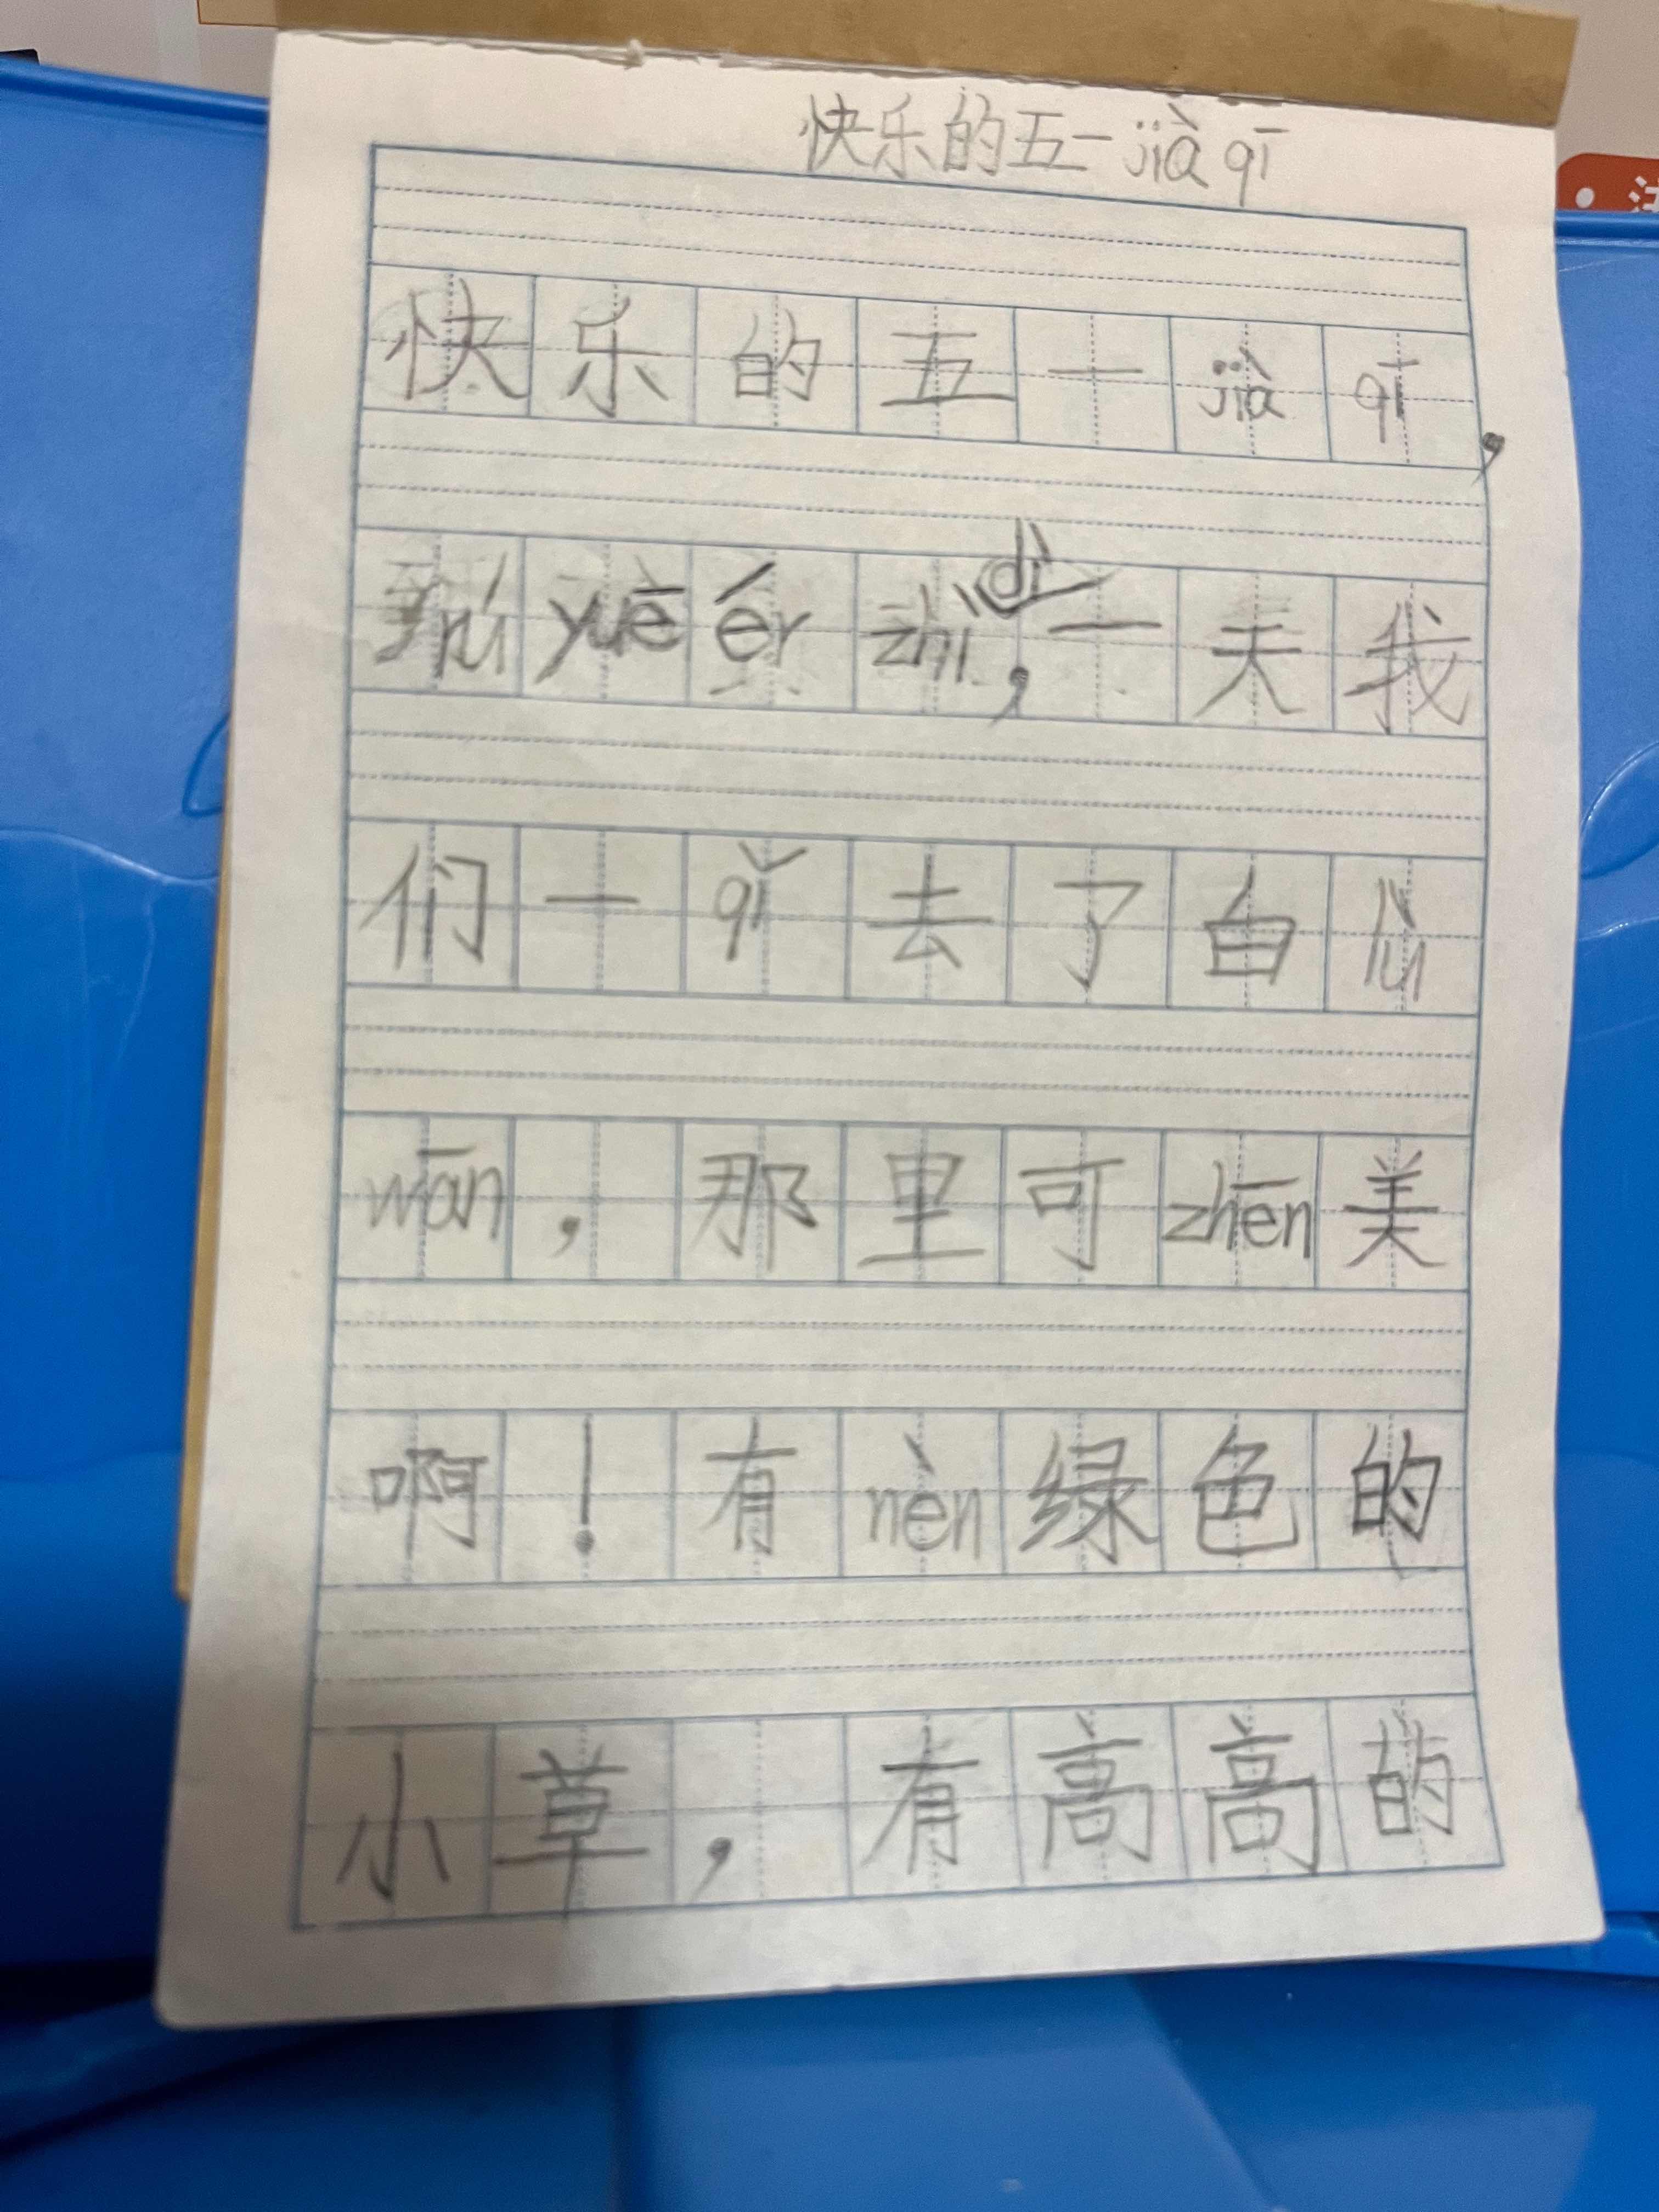 快乐的五一jià qī
快乐的五一jià qī,
rú yuē ér zhì,dì一天我
们一qǐ去了白lù
wān,那里可zhēn美
啊!有nèn绿色的
小草,有高高的